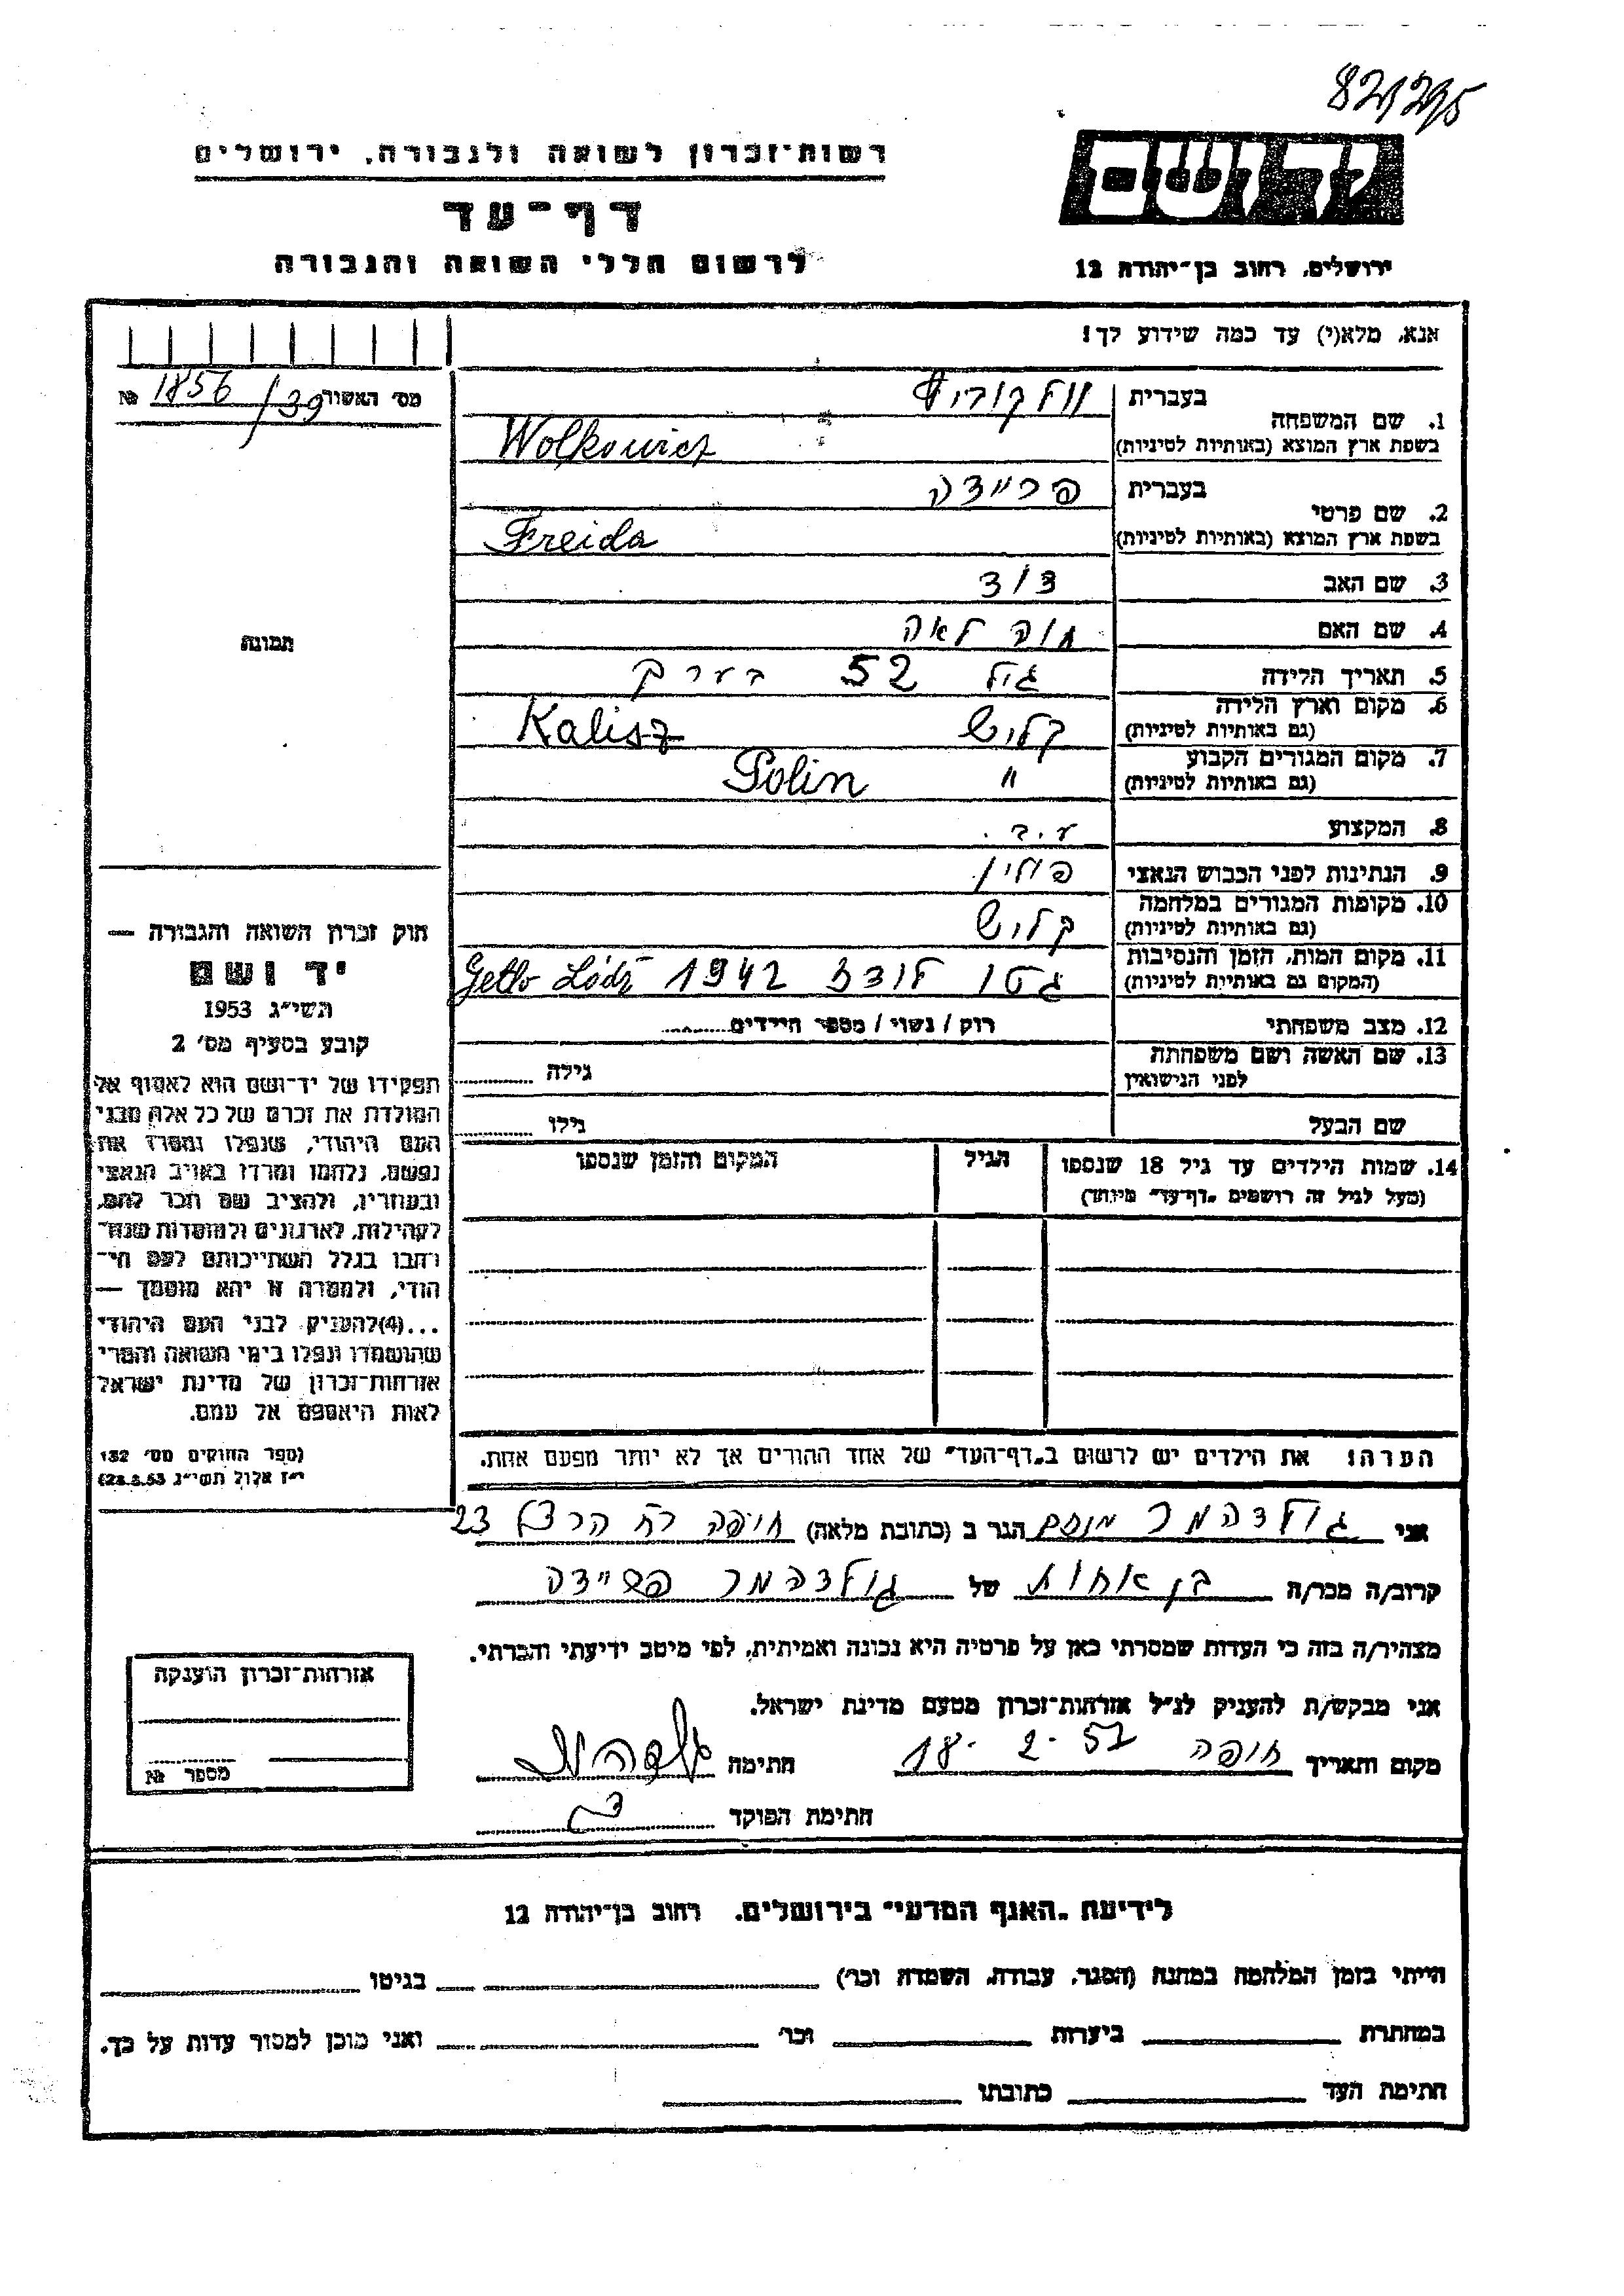 82/295
רשות־זכרון לשואה ולגבורה, ירושלים
יד ושם
דף־עד
לרשום חללי השואה והגבורה
ירושלים, רחוב בן־יהודה 12
אנא, מלא(י) עד כמה שידוע לך!
מס׳ האשור 1856/39 №
1. שם המשפחה
בעברית
בשפת ארץ המוצא (באותיות לטיניות)
Wolkowicz
2. שם פרטי
בעברית פריידה
בשפת ארץ המוצא (באותיות לטיניות)
Freida
3. שם האב
4. שם האם חוה לאה
5. תאריך הלידה גיל 52 בערך
6. מקום וארץ הלידה קליש Kalisz
(גם באותיות לטיניות)
7. מקום המגורים הקבוע " Polin
(גם באותיות לטיניות)
8. המקצוע ע.ב.
9. הנתינות לפני הכבוש הנאצי פולין
10. מקומות המגורים במלחמה קליש
(גם באותיות לטיניות)
11. מקום המות, הזמן והנסיבות גטו לודז 1942 Getto Lódź
(המקום גם באותיות לטיניות)
12. מצב משפחתי רוק / נשוי / מספר הילדים
13. שם האשה ושם משפחתה
לפני הנישואין
גילה
שם הבעל גילו
14. שמות הילדים עד גיל 18 שנספו הגיל המקום והזמן שנספו
(מעל לגיל זה רושמים „דף־עד" מיוחד)
הערה! את הילדים יש לרשום ב„דף־העד" של אחד ההורים אך לא יותר מפעם אחת.
תמונה
חוק זכרון השואה והגבורה —
יד ושם
תשי״ג 1953
קובע בסעיף מס׳ 2
תפקידו של יד־ושם הוא לאסוף אל
המולדת את זכרם של כל אלה מבני
העם היהודי, שנפלו ומסרו את
נפשם, נלחמו ומרדו באויב הנאצי
ובעוזריו, ולהציב שם וזכר להם,
לקהילות, לארגונים ולמוסדות שנח־
רבו בגלל השתייכותם לעם הי־
הודי, ולמטרה זו יהא מוסמך —
...(4)להעניק לבני העם היהודי
שהושמדו ונפלו בימי השואה והמרי
אזרחות־זכרון של מדינת ישראל
לאות היאספם אל עמם.
(ספר החוקים מס׳ 132
י״ז אלול תשי״ג 28.8.53)
אני גולדהמר מנחם הגר ב (כתובת מלאה) חיפה רח הרצל 23
קרוב/ה מכר/ה בן אחות של גולדהמר פריידה
מצהיר/ה בזה כי העדות שמסרתי כאן על פרטיה היא נכונה ואמיתית, לפי מיטב ידיעתי והכרתי.
אני מבקש/ת להעניק לנ״ל אזרחות־זכרון מטעם מדינת ישראל.
מקום ותאריך חיפה 18.2.57 חתימה
חתימת הפוקד
אזרחות־זכרון הוענקה
מספר №
לידיעת „האגף המדעי" בירושלים, רחוב בן־יהודה 12
הייתי בזמן המלחמה במחנה (הסגר, עבודה, השמדה וכו׳) בגיטו
במחתרת ביערות וכו׳ ואני מוכן למסור עדות על כך.
חתימת העד כתובתו